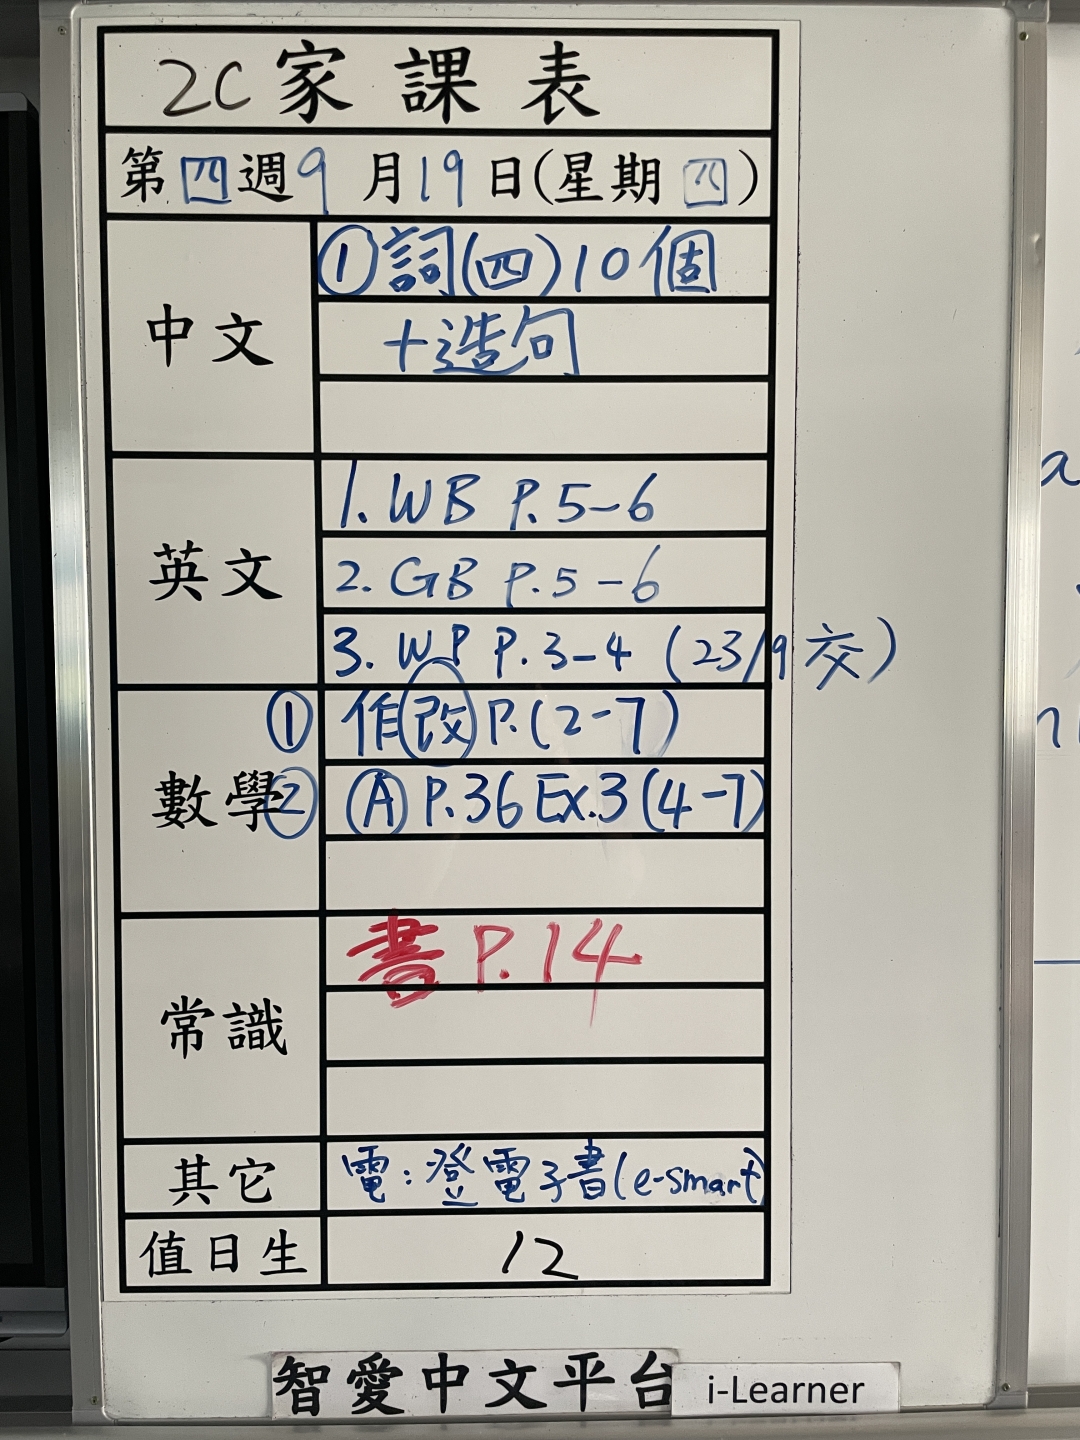 2C家課表
第四週9月19日(星期四)
中文
①詞(四)10個
+造句
英文
1. WB P.5-6
2. GB P.5-6
3. WP P.3-4 (23/9交)
數學
① 作改 P.(2-7)
② Ⓐ P.36 Ex.3(4-7)
常識
書 P.14
其它
電:登電子書(e-smart)
值日生
12
智愛中文平台
i-Learner